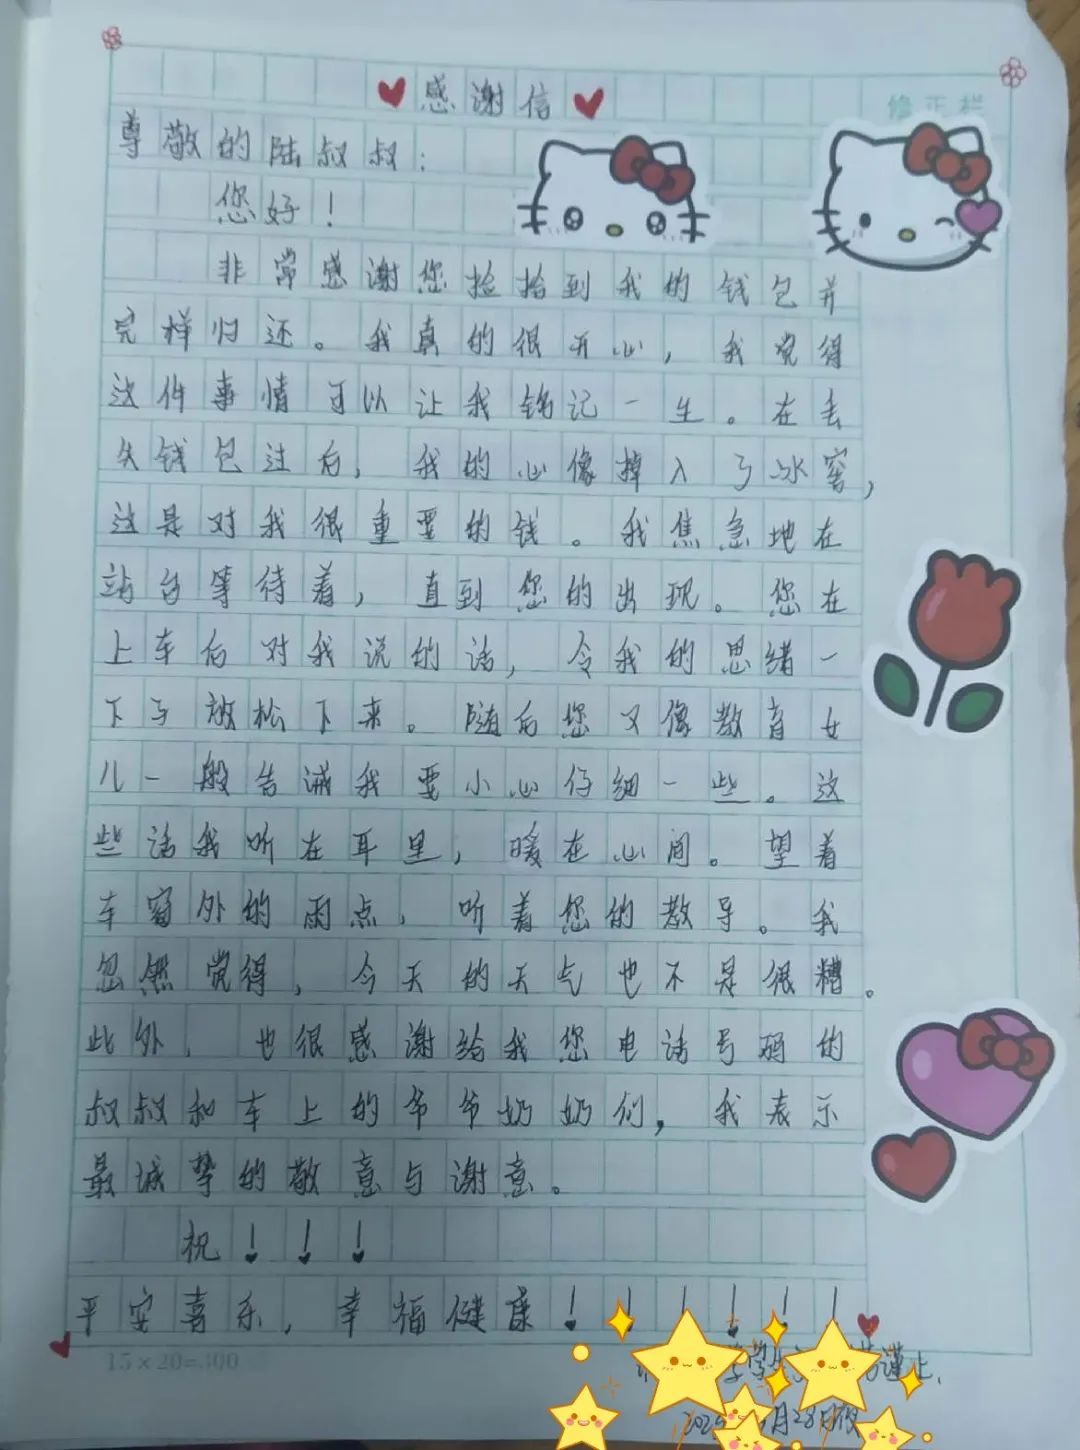 感谢信
修正栏
尊敬的陆叔叔：
您好！
非常感谢您捡拾到我的钱包并
完样归还。我真的很开心，我觉得
这件事情可以让我铭记一生。在丢
失钱包过后，我的心像掉入了冰窖，
这是对我很重要的钱。我焦急地在
站台等待着，直到您的出现。您在
上车后对我说的话，令我的思绪一
下子放松下来。随后您又像教育女
儿一般告诫我要小心仔细一些。这
些话我听在耳里，暖在心间。望着
车窗外的雨点，听着您的教导。我
忽然觉得，今天的天气也不是很糟。
此外，也很感谢给我您电话号码的
叔叔和车上的爷爷奶奶们，我表示
最诚挚的敬意与谢意。
祝！！！
平安喜乐，幸福健康！！！！！！
15×20=300
谨上.
月28日夜